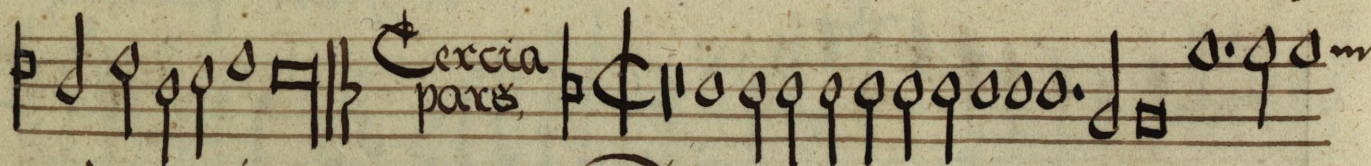 Tercia
pars,